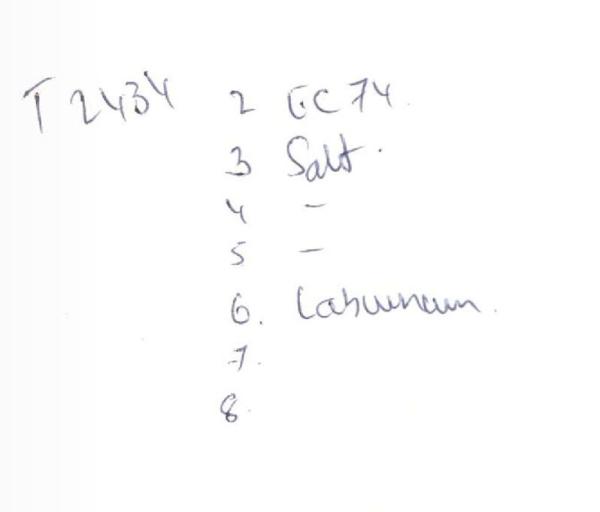 T 2434 2 GC 74.
3 Salt.
4 –
5 –
6. Laburnum.
7.
8.